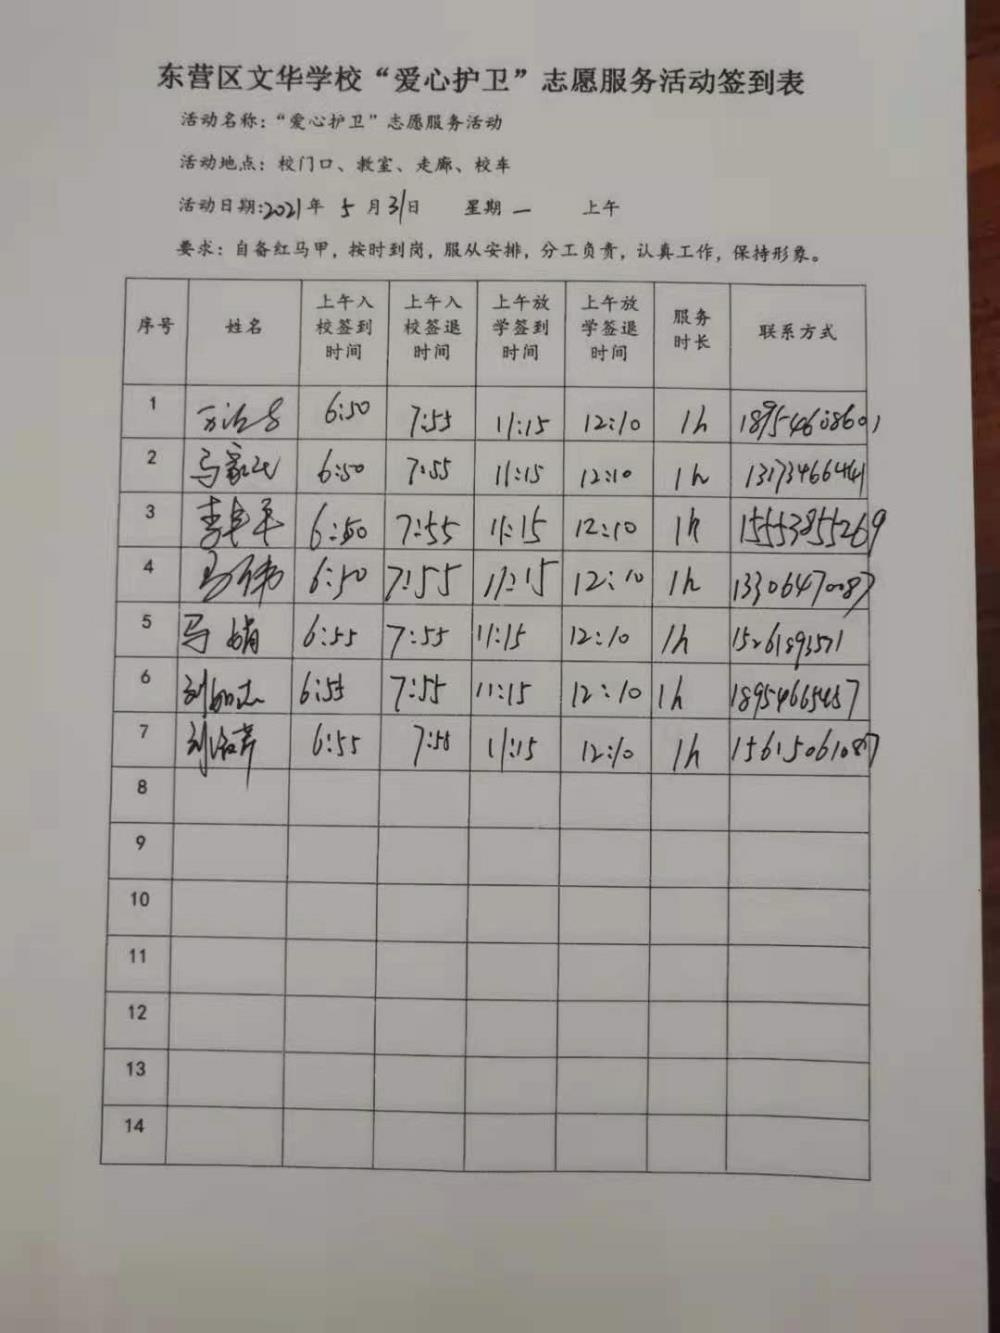 东营区文华学校“爱心护卫”志愿服务活动签到表
活动名称：“爱心护卫”志愿服务活动
活动地点：校门口、教室、走廊、校车
活动日期：2021年 5月31日 星期一 上午
要求：自备红马甲，按时到岗，服从安排，分工负责，认真工作，保持形象。
序号 姓名 上午入校签到时间 上午入校签退时间 上午放学签到时间 上午放学签退时间 服务时长 联系方式
1 6:50 7:55 11:15 12:10 1h 18954608601
2 6:50 7:55 11:15 12:10 1h 13173466441
3 6:50 7:55 11:15 12:10 1h 15553855269
4 6:50 7:55 11:15 12:10 1h 13306470087
5 马娟 6:55 7:55 11:15 12:10 1h
6 6:55 7:55 11:15 12:10 1h 18954665457
7 6:55 7:55 11:15 12:10 1h 15615061087
8
9
10
11
12
13
14